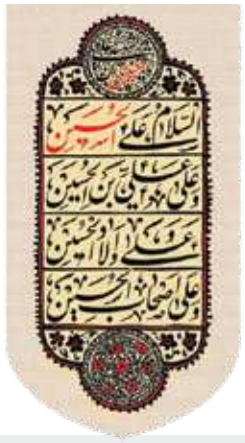 السلام علی الحسین
و علی علی بن الحسین
و علی اولاد الحسین
و علی اصحاب الحسین